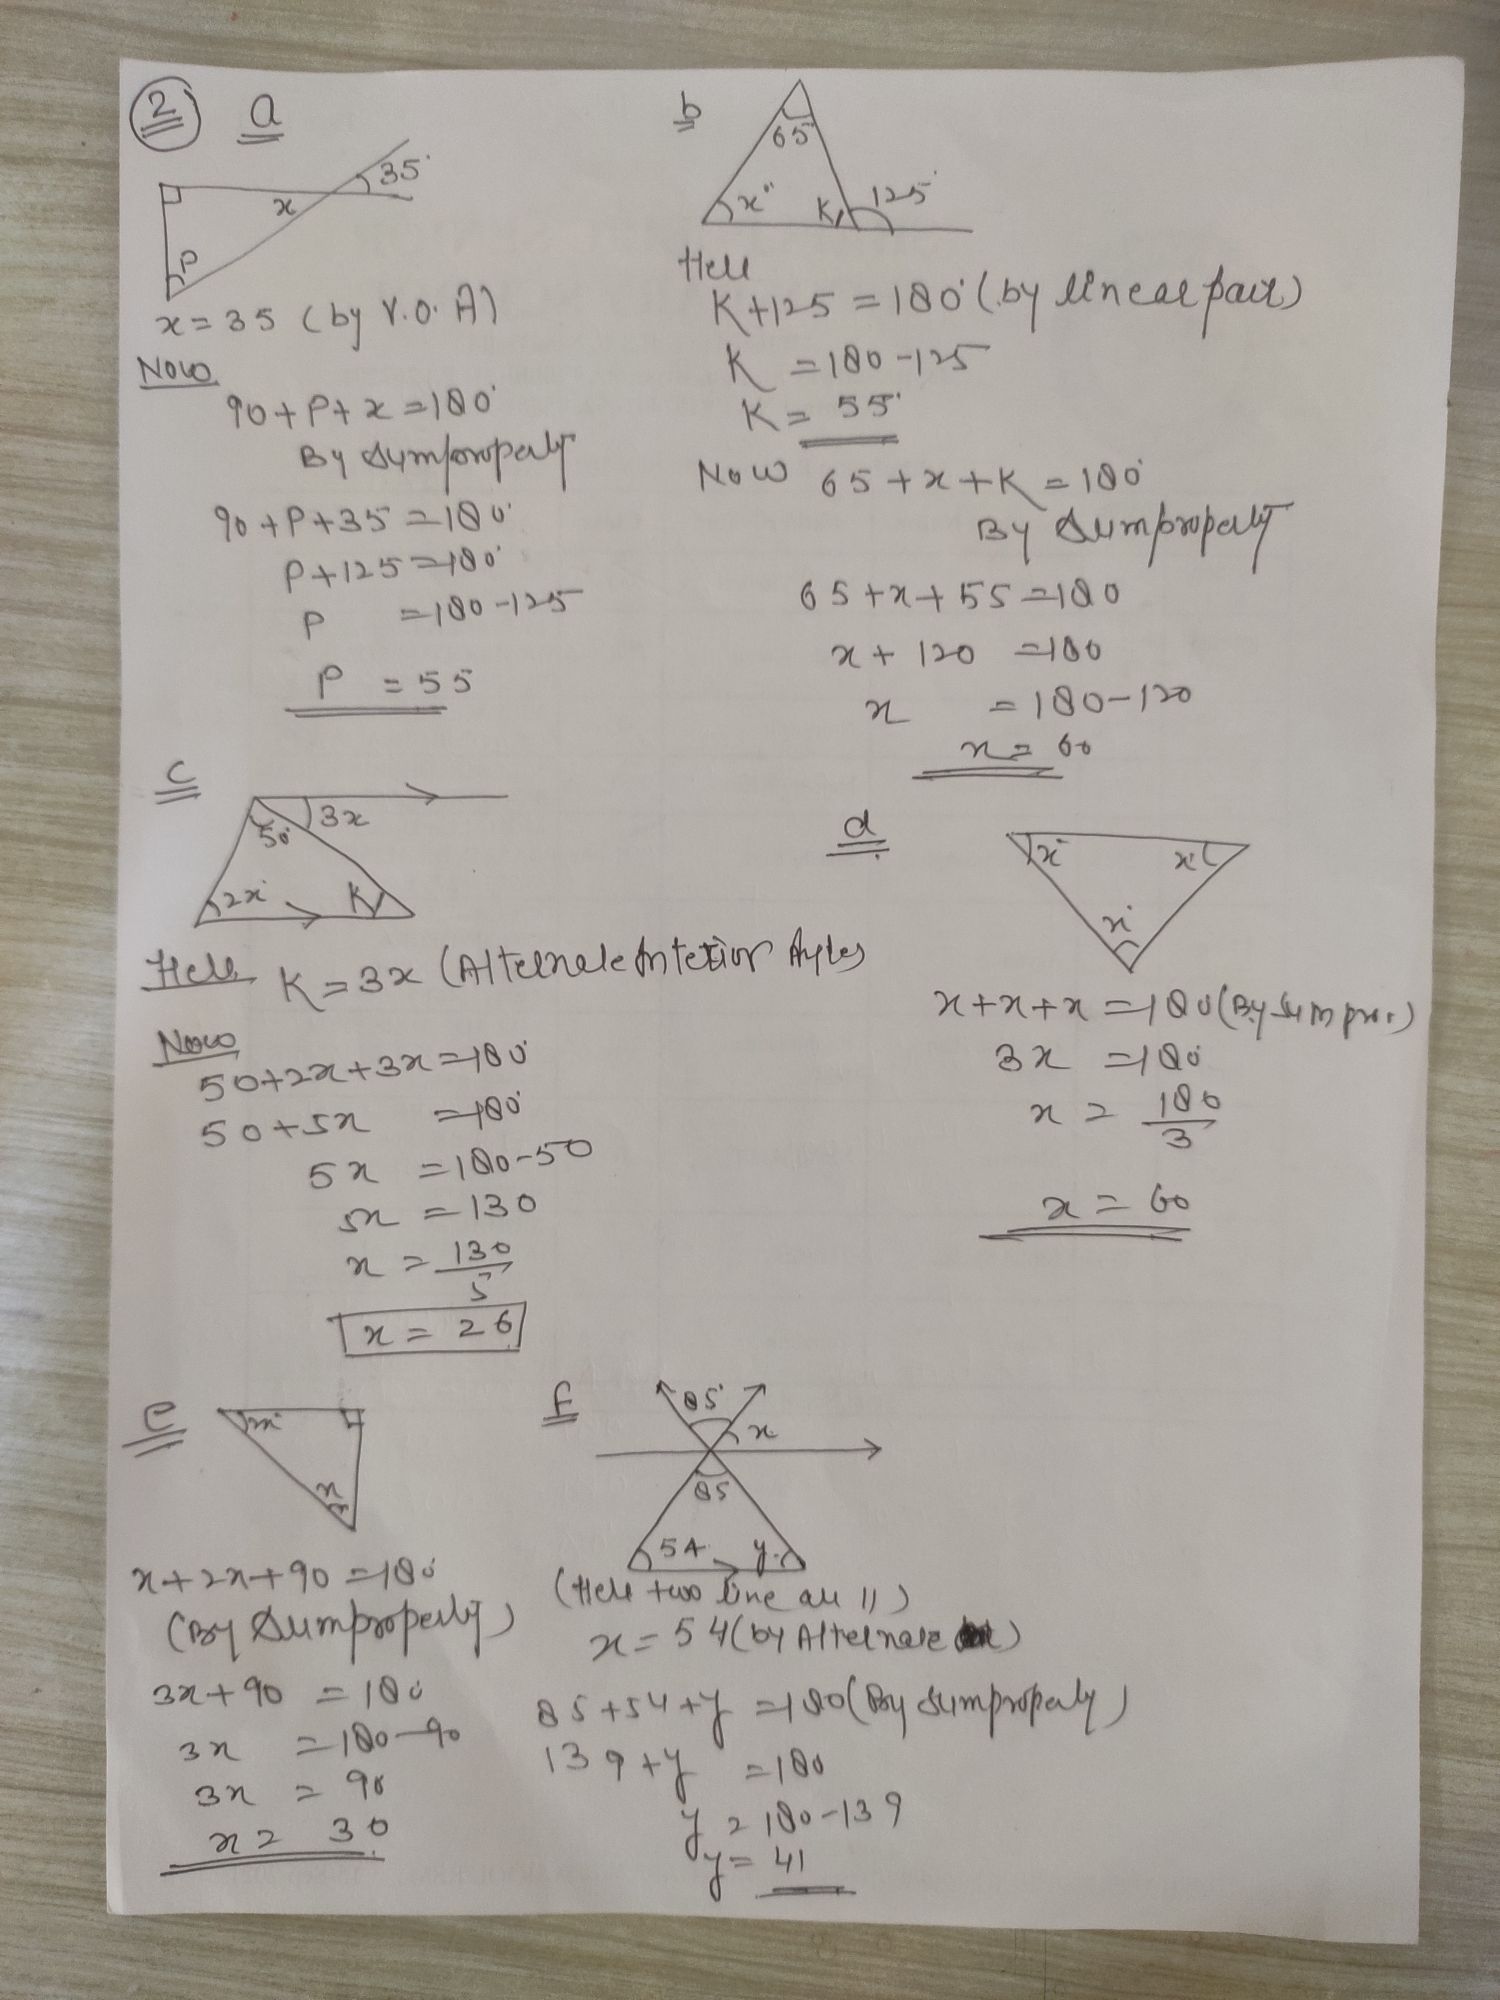 2 a
35°
x
P
x = 35 (by V.O.A)
Now
90 + P + x = 180°
By Sumproperty
90 + P + 35 = 180°
P + 125 = 180°
P = 180 - 125
P = 55
b
65°
x°
K
125°
Here
K + 125 = 180° (by linear pair)
K = 180 - 125
K = 55°
Now 65 + x + K = 180°
By Sumproperty
65 + x + 55 = 180
x + 120 = 180
x = 180 - 120
x = 60
c
3x
50°
2x°
K
Here K = 3x (Alternate Interior Angles
Now
50 + 2x + 3x = 180°
50 + 5x = 180°
5x = 180 - 50
5x = 130
x = 130
5
x = 26
d
x°
x°
x°
x + x + x = 180 (By Sum pro.)
3x = 180°
x = 180
3
x = 60
e
x
x + 2x + 90 = 180°
(By Sumproperty)
3x + 90 = 180
3x = 180 - 90
3x = 90
x = 30
f
85°
x
85
54
y
(Here two line are ||)
x = 54 (by Alternate)
85 + 54 + y = 180 (By Sumproperty)
139 + y = 180
y = 180 - 139
y = 41